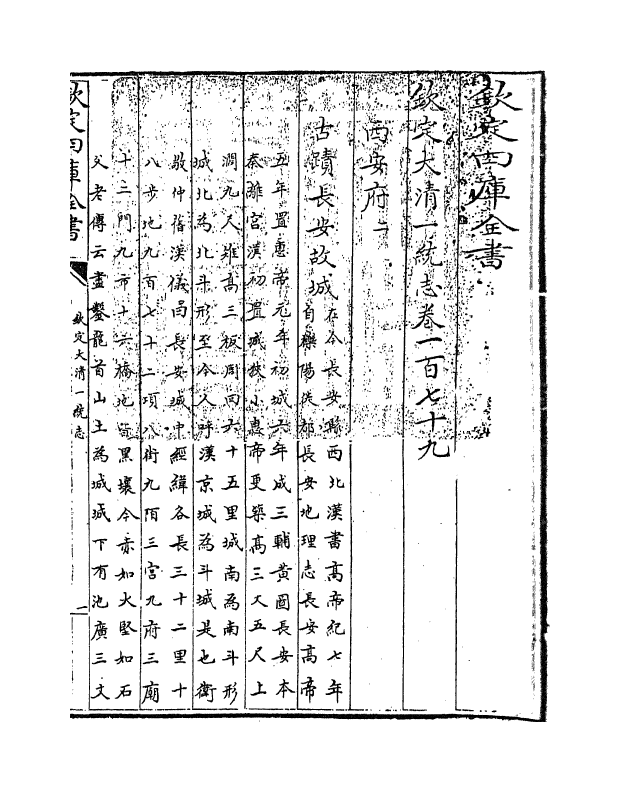 欽定四庫全書
欽定大清一統志卷一百七十九
西安府二
古蹟長安故城在今長安縣西北漢書高帝紀七年
自櫟陽徙都長安地理志長安高帝
五年置惠帝元年初城六年成三輔黃圖長安本
秦離宮漢初置城狹小惠帝更築高三丈五尺上
濶九尺雉高三板周回六十五里城南為南斗形
城北為北斗形至今人呼漢京城為斗城是也衛
敬仲舊漢儀曰長安城中經緯各長三十二里十
八步地九百七十二項八街九陌三宮九府三廟
十二門九市十六橋地皆黑壤今赤如火堅如石
父老傳云盡鑿龍首山土為城城下有池廣三丈
欽定四庫全書
欽定大清一統志
一